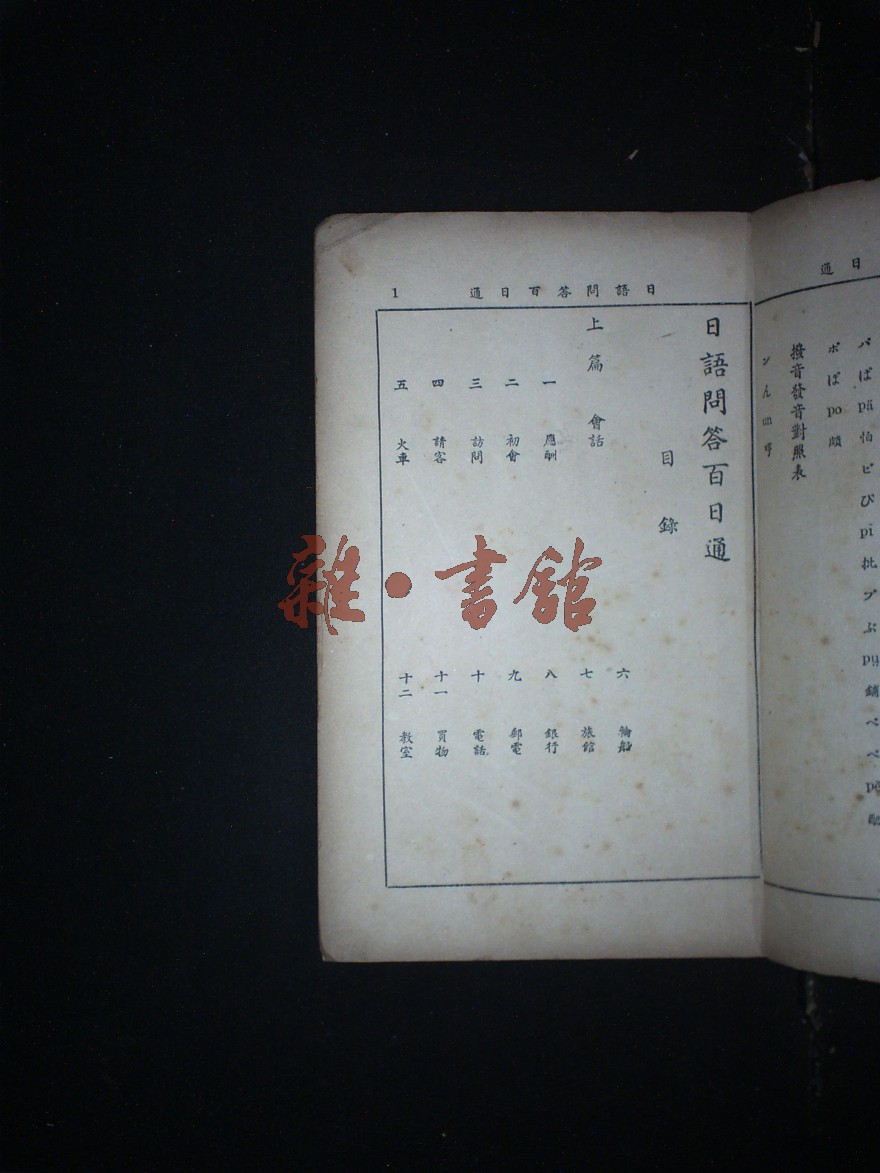 通日
パばpä怕ピびpi批プぶpü鋪ペべpé
ポぼpo頗
撥音發音對照表
ンん
日語問答百日通
1
日語問答百日通
目錄
上篇 會話
一 應酬
二 初會
三 訪問
四 請客
五 火車
六 輪船
七 旅館
八 銀行
九 郵電
十 電話
十一 買物
十二 教室
雜·書館